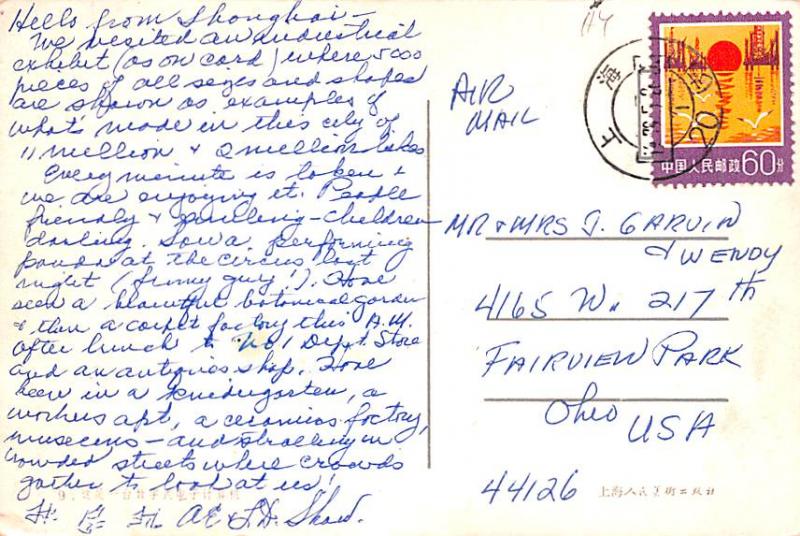 Hello from Shanghai —
We visited an industrial
exhibit (as on card) where 5000
pieces of all sizes and shapes
are shown as examples of
what's made in this city of
11 million + 2 million bikes
Every minute is taken &
we are enjoying it. People
friendly & smiling - children
darling. Saw a performing
panda at the circus last
night (funny guy!). Have
seen a beautiful botanical garden
& then a carpet factory this A.M.
After lunch to No 1 Dept. Store
and an antiques shop. Have
been in a kindergarten, a
workers apt, a ceramics factory,
museums — and strolling in
crowded streets where crowds
gather to look at us!
A.E. & L.D. Shaw.
AIR
MAIL
上海
20
中国人民邮政 60分
MR & MRS J. GARVIN
& WENDY
4165 W. 217 th
FAIRVIEW PARK
Ohio
USA
44126
上海人民美術出版社